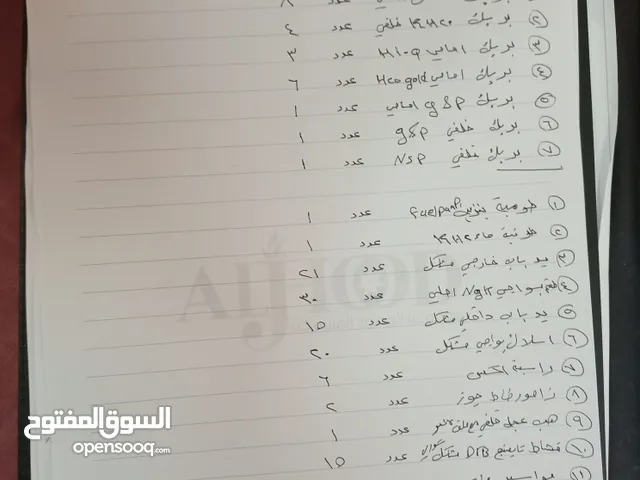 عدد ٨
② بريك KH٢٠ خلفي عدد ٤
③ بريك امامي HI-Q عدد ٣
④ بريك امامي Hco gold عدد ٦
⑤ بريك gSP امامي عدد ١
⑥ بريك خلفي gSP عدد ١
⑦ بريك خلفي NSP عدد ١
① طرمبة بنزين Fuelpamp عدد ١
② طرمبة ماء KH٢٠ عدد ١
③ يد باب خارجي مشكل عدد ٢١
④ بواجي Ngk اصلي عدد ٣٠
⑤ يد باب داخلي مشكل عدد ١٥
⑥ اسلاك بواجي مشكل عدد ٢٠
⑦ عدد ٦
⑧ زامور طاط جوز عدد ٢
⑨ هب عجل خلفي عدد ١
⑩ قشاط تايمنج مشكل عدد ١٥
⑪
ALJION
السوق المفتوح
opensooq.com